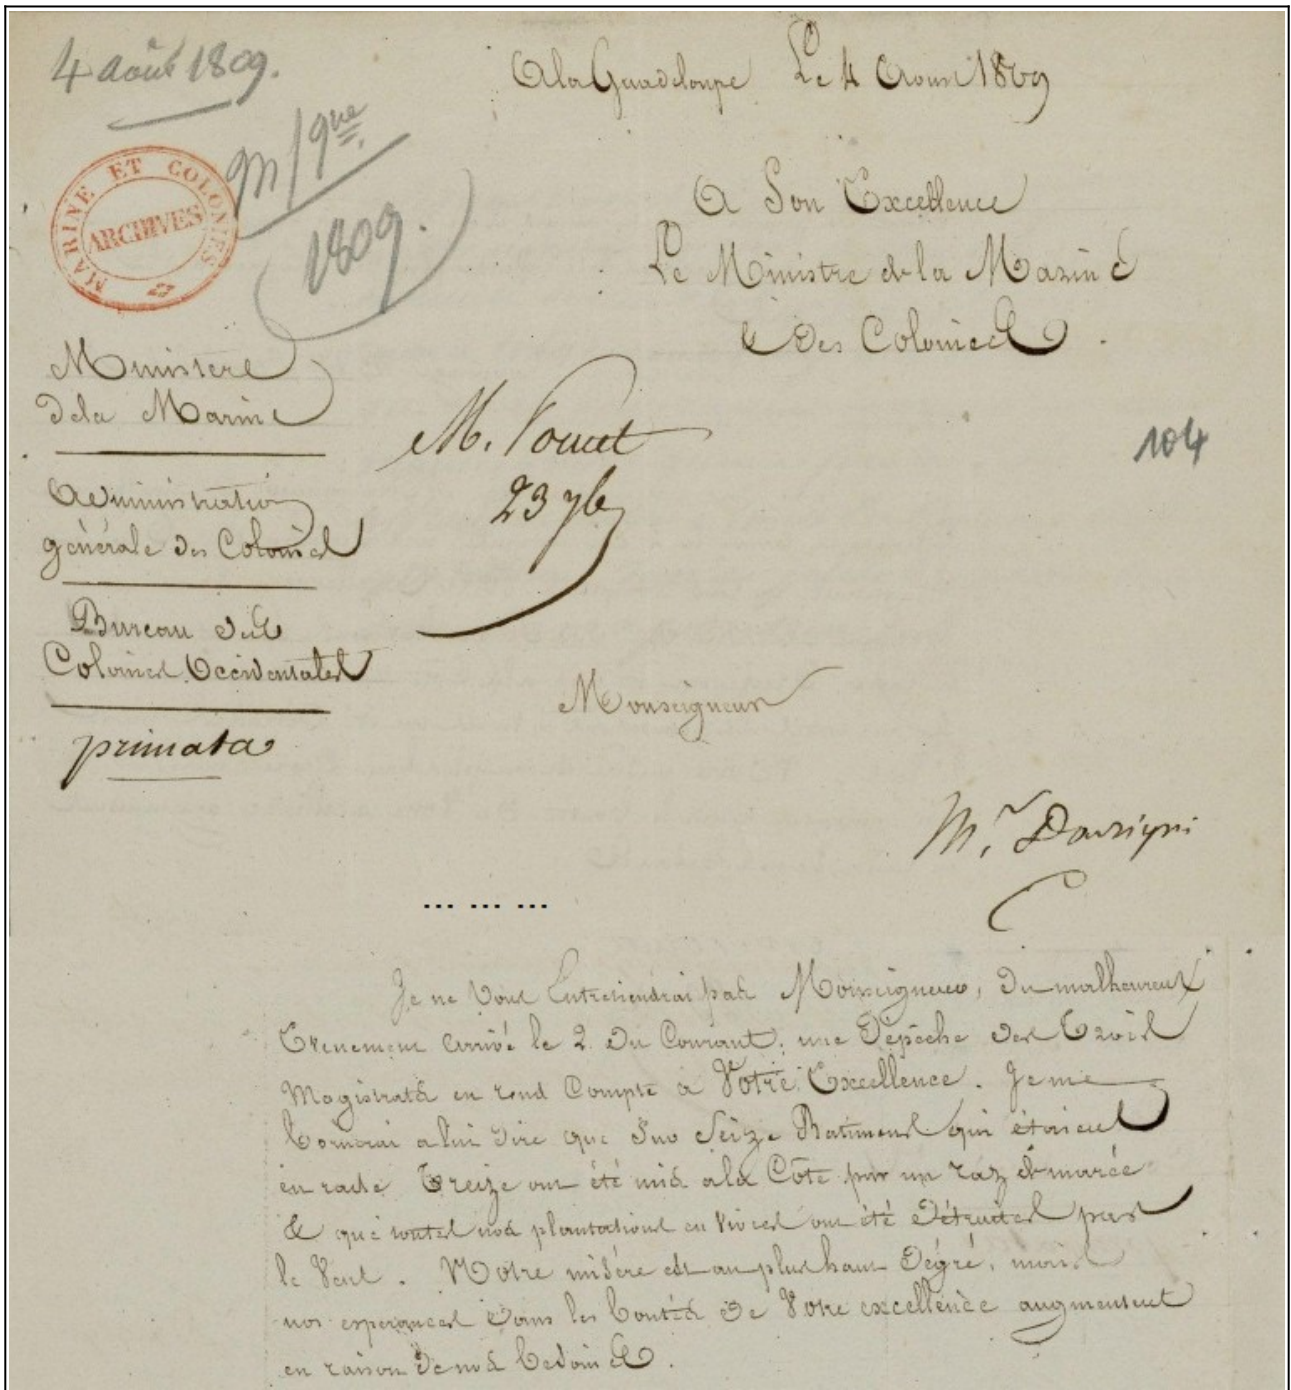 4 août 1809.
A la Guadeloupe Le 4 Aoust 1809
MARINE ET COLONIES
ARCHIVES
M/que
1809.
A Son Excellence
Le Ministre de la Marine
& Des Colonies.
Ministere
de la Marine
M. Poucet
23 7bre
104
Administration
générale des Colonies
Bureau des
Colonies Occidentales
Monseigneur
primata
Mr.
... ... ...
Je ne Vous Entretiendrai pas Monseigneur, du malheureux
Evenement arrivé le 2. du Courant; une Dépeche des Trois
Magistrats en rend Compte a Votre Excellence. Je me
bornerai a lui dire que sur Seize Batiments qui étaient
en rade Treize ont été mis a la Côte par un raz de marée
& que toutes nos plantations en vivres ont été détruites par
le Vent. Notre misére est au plus haut dégré, mais
nos esperances dans les bontés de Votre excellence augmentent
en raison de nos besoins.